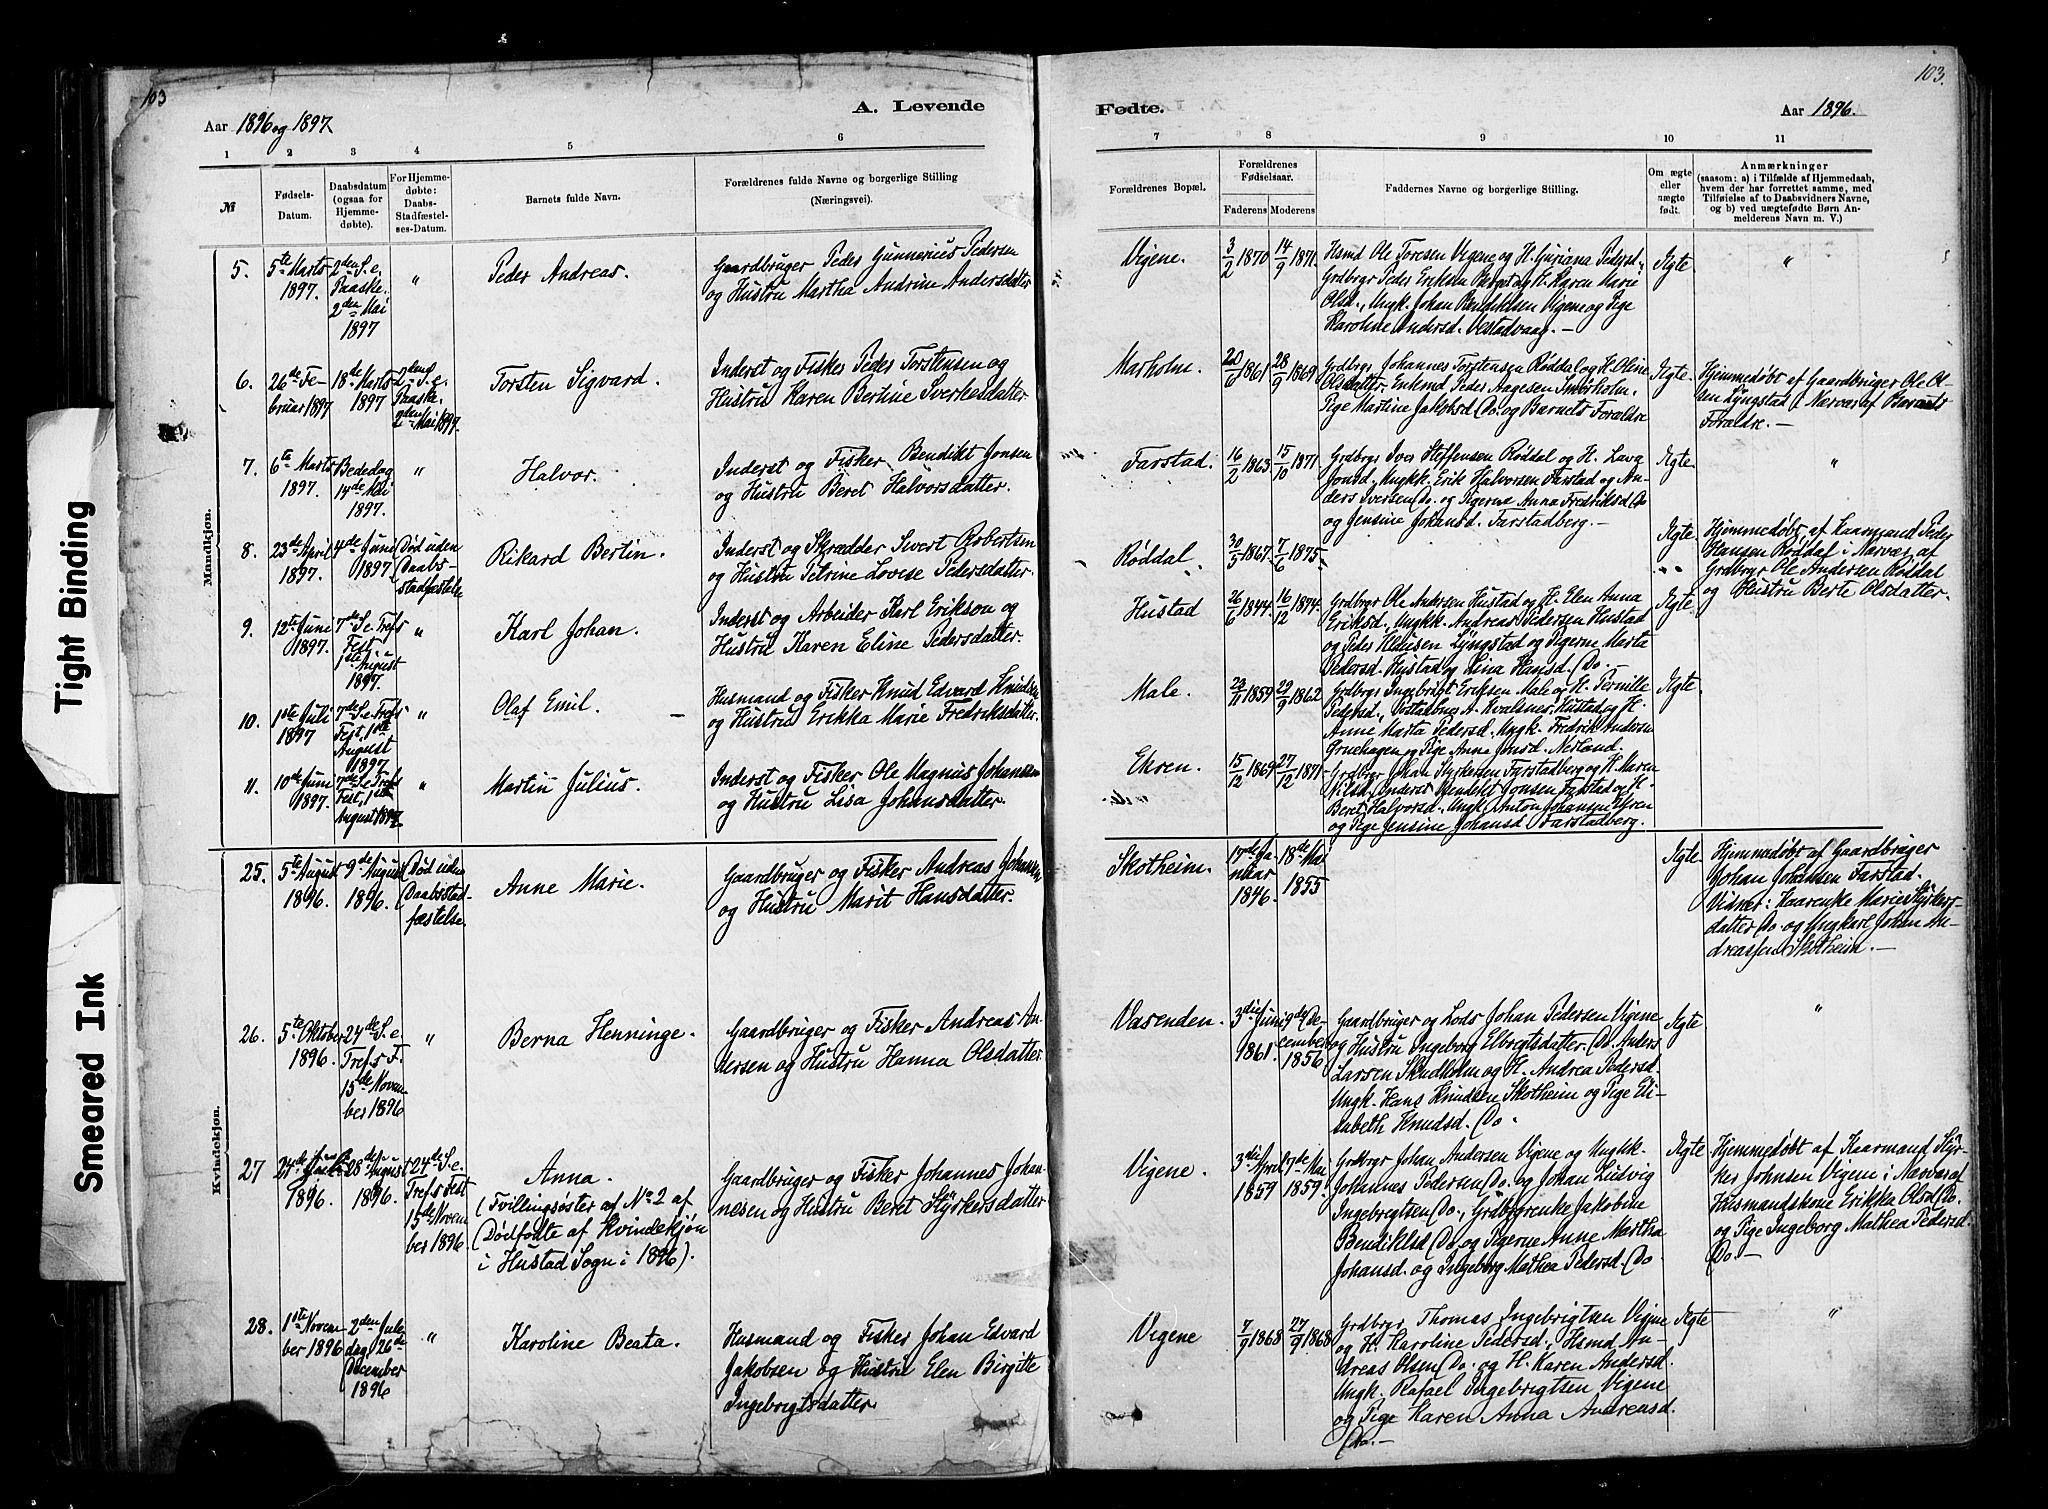 103
Aar 1896 og 1897.
A. Levende
1 2 3 4 5 6
№
Fødsels-Datum.
Daabsdatum (ogsaa for Hjemmedøbte).
For Hjemmedøbte: Daabs-Stadfæstelses-Datum.
Barnets fulde Navn.
Forældrenes fulde Navne og borgerlige Stilling (Næringsvei).
Mandkjøn.
5. 5te Marts 1897. 2den S. e. Paaske. 2den Mai 1897 " Peder Andreas. Gaardbruger Peder Gunnerius Pedersen
og Hustru Martha Andrine Andersdatter
6. 26de Februar 1897 18de Marts 1897 2den S. e. Paaske. 2den Mai 1897. Torsten Sigvard. Inderst og Fisker Peder Torstensen og
Hustru Karen Bertine Sverkesdatter
7. 6te Marts 1897. Bededag 14de Mai 1897. " Halvor. Inderst og Fisker Bendikt Jonsen
og Hustru Beret Halvorsdatter.
8. 23de April 1897. 4de Juni 1897 Død uden Daabsstadfæstelse Rikard Bertin. Inderst og Skrædder Sivert Robertsen
og Hustru Petrine Lovise Pedersdatter.
9. 12te Juni 1897. 7de S. e. Trefs Fest 1ste August 1897. " Karl Johan. Inderst og Arbeider Karl Erikson og
Hustru Karen Eline Pedersdatter.
10. 1ste Juli 1897 7de S. e. Trefs Fest, 1ste August 1897 " Olaf Emil. Husmand og Fisker Knud Edvard Knudsen
og Hustru Erikka Marie Fredriksdatter.
11. 10de Juni 1897. 7de S. e. Trefs Fest, 1ste August 1897. " Martin Julius. Inderst og Fisker Ole Magnus Johansen
og Hustru Lisa Johansdatter.
Kvindekjøn.
25. 5te August 1896. 9de August 1896. Død uden Daabsstadfæstelse. Anne Marie. Gaardbruger og Fisker Andreas Johansen
og Hustru Marit Hansdatter.
26. 5te Oktober 1896. 24de S. e. Trefs F. 15de November 1896 " Berna Henninge. Gaardbruger og Fisker Andreas An-
dersen og Hustru Hanna Olsdatter
27 24de 1896. 28de August 1896. 24de S. e. Trefs Fest 15de November 1896. Anna.
(Tvillingsøster af No 2 af
Dødfødte af Kvindekjøn
i Hustad Sogn i 1896).
Gaardbruger og Fisker Johannes Johan-
nesen og Hustru Beret Styrkersdatter
28. 1ste November 1896 2den Juledag 26de December 1896 " Karoline Beata. Husmand og Fisker Johan Edvard
Jakobsen og Hustru Elen Birgitte
Ingebrigtsdatter.
Tight Binding
Smeared Ink
103.
Fødte.
Aar 1896.
7 8 9 10 11
Forældrenes Bopæl.
Forældrenes Fødselsaar.
Faderens Moderens
Faddernes Navne og borgerlige Stilling.
Om ægte eller uægte født.
Anmærkninger
(saasom: a) i Tilfælde af Hjemmedaab,
hvem der har forrettet samme, med
Tilføielse af to Daabsvidners Navne,
og b) ved uægtefødte Børn An-
melderens Navn m. V.)
Vigene. 3/2 1870 14/9 1871. Hsmd Ole Toresen Vigene og H. Guriana Pedersd.,
Grdbrgr Peder Eriksen og H. Karen Marie
Olsd., Ungk. Johan Bendiktsen Vigene og Pige
Karoline Andersd. Vestadvaag.— Ægte "
Marholm. 20/6 1861 28/9 1869. Grdbrgr Johannes Torstensen Røddal og H. Oline
Olsdatter. Enkemd Peder Aagesen Smørholm,
Pige Martine Jakobsd. Do. og Barnets Forældre Ægte. Hjemmedøbt af Gaardbruger Ole Ol-
sen Lyngstad i Nærvær af Barnets
Forældre.—
Farstad. 16/2 1863 15/10 1871 Grdbrgr Iver Steffensen Røddal og H. Lava
Jonsd., Ungkk. Erik Halvorsen Farstad og An-
ders Iversen Do. og Pigerne Anna Fredriksd. Do
og Jensine Johansd. Farstadberg.— Ægte "
Røddal 30/5 1867. 7/6 1875. Ægte Hjemmedøbt af Kaarmand Peder
Hansen Røddal i Nærvær af
Grdbrgr Ole Andersen Røddal
og Hustru Berte Olsdatter.
Hustad 26/6 1844. 16/12 1874. Grdbrgr Ole Andersen Hustad og H. Elen Anna
Eriksd., Ungkk. Andreas Pedersen Hustad
og Peder Klausen Lyngstad og Pigerne Marta
Pedersd. Hustad og Lina Hansd. Do.— Ægte
Male. 23/11 1859 29/9 1862 Grdbrgr Ingebrigt Eriksen Male og H. Pernille
Pedersd., A. Kvalsnes, Hustad og H.
Anne Marta Pedersd. Ungk. Fredrik Andersen
Gruehagen og Pige Anna Jonsd. Nerland. Ægte
Ehren. 15/12 1869 27/12 1871. Grdbrgr Johan Styrkersen Farstadberg og H. Maren
Nilsd. Inderst Bendikt Jonsen Farstad og H.
Beret Halvorsd., Ungk. Anton Johansen Ehren
og Pige Jensine Johansd. Farstadberg.
Skotheim. 17de Januar 1846. 18de Mai 1855 Ægte Hjemmedøbt af Gaardbruger
Johan Johansen Farstad.
Vidner: Kaarenke Marie Styrkers-
datter Do. og Ungkarl Johan An-
dreassen Skotheim.—
Vasenden. 3die Juni 1861. 9de December 1856 Gaardbruger og Lods Johan Pedersen Vigene
og Hustru Ingeborg Elbregtsdatter. Do. Anders
Larsen Skudholm og H. Andrea Pedersd.
Ungk. Hans Knudsen Skotheim og Pige Eli-
sabeth Knudsd. Do. Ægte "
Vigene. 3die April 1859 7de Mai 1859. Grdbrgr Johan Andersen Vigene og Ungkk.
Johannes Pedersen Do. og Johan Ludvig
Ingebrigtsen Do., Grdbrgrenke Jakobine
Bendiktsd. Do. og Pigerne Anne Martha
Johansd. og Ingeborg Mathea Pedersd. Do Ægte Hjemmedøbt af Kaarmand Styr-
ker Johnsen Vigene i Nærvær af
Husmandskone Erikka Olsd. Do.
og Pige Ingeborg Mathea Pedersd.
Do.—
Vigene 7/9 1868 27/9 1868 Grdbrgr Thomas Ingebrigtsen Vigene
og H. Karoline Pedersd., Hsmd An-
dreas Olsen Do. og H. Karen Andersd.
Ungk. Rafael Ingebrigtsen Vigene
og Pige Karen Anna Andreasd.
Do.— Ægte "